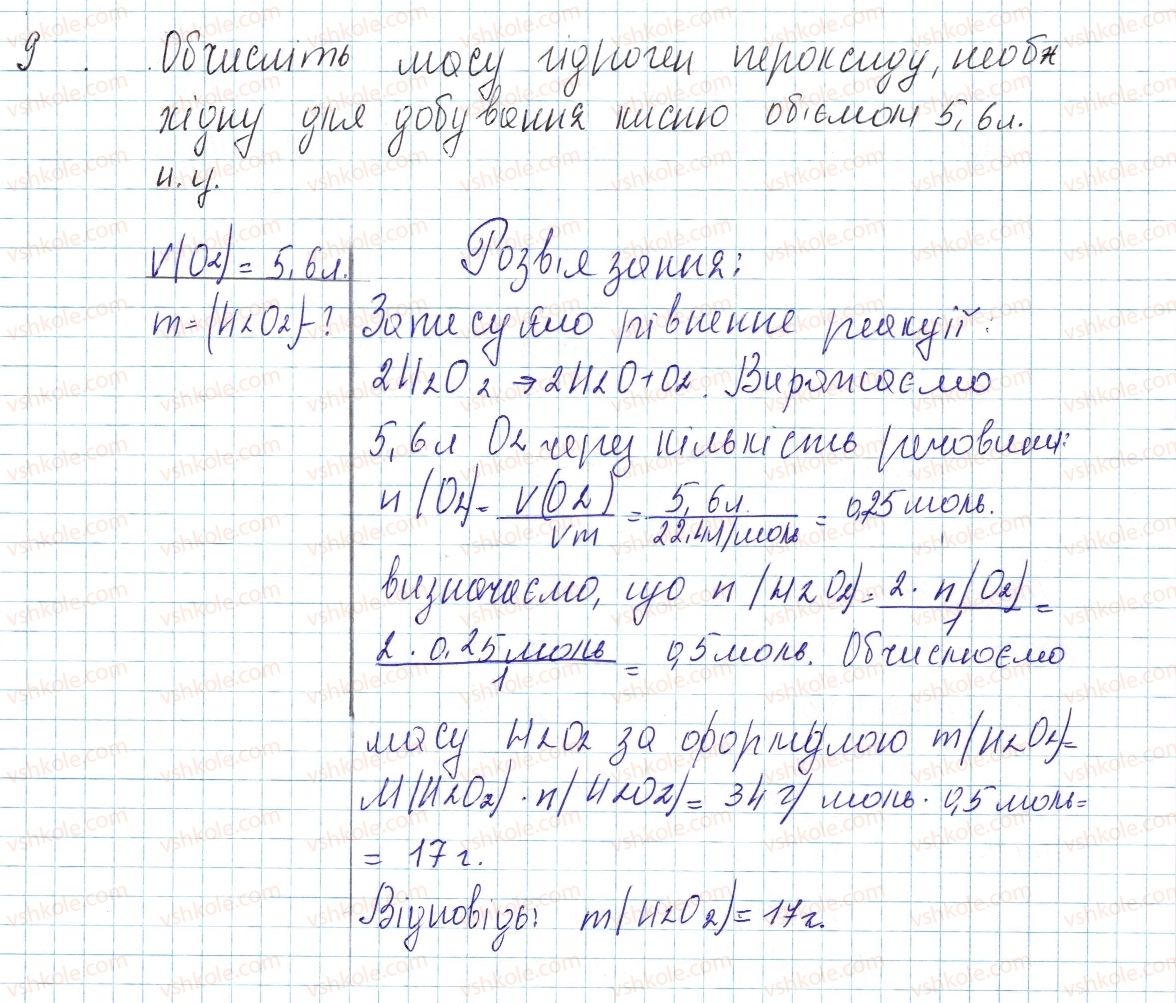 9. Обчисліть масу гідроген пероксиду, необх
хідну для добування кисню об'ємом 5,6л.
н.у.
V(O2) = 5,6л.
m=(H2O2)-?
Розв'язання:
Записуємо рівнення реакції:
2H2O2 → 2H2O+O2. Виражаємо
5,6л O2 через кількість речовини:
n(O2) = V(O2)/Vm = 5,6л/22,4л/моль = 0,25моль.
визначаємо, що n(H2O2) = 2·n(O2)/1 =
2·0,25моль/1 = 0,5моль. Обчислюємо
масу H2O2 за формулою m(H2O2)=
M(H2O2)·n(H2O2) = 34г/моль·0,5моль=
= 17г.
Відповідь: m(H2O2) = 17г.
vshkole.com